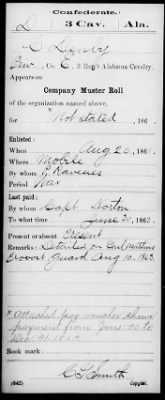 Confederate.
D 3 Cav. Ala.
Pvt, Co. E, 3 Reg't Alabama Cavalry.
Appears on
Company Muster Roll
of the organization named above,
for Not stated, 186 .
Enlisted:
When Aug 20, 186 .
Where Mobile
By whom G. Ravesies
Period War
Last paid:
By whom Capt. Dorton
To what time June 30, 1863.
Present or absent Present
Remarks: Detailed on
Provost Guard Aug 10, 1863.
Attached pay voucher shows
payment from June 30 to
Book mark:
(642) C S Smith Copyist.